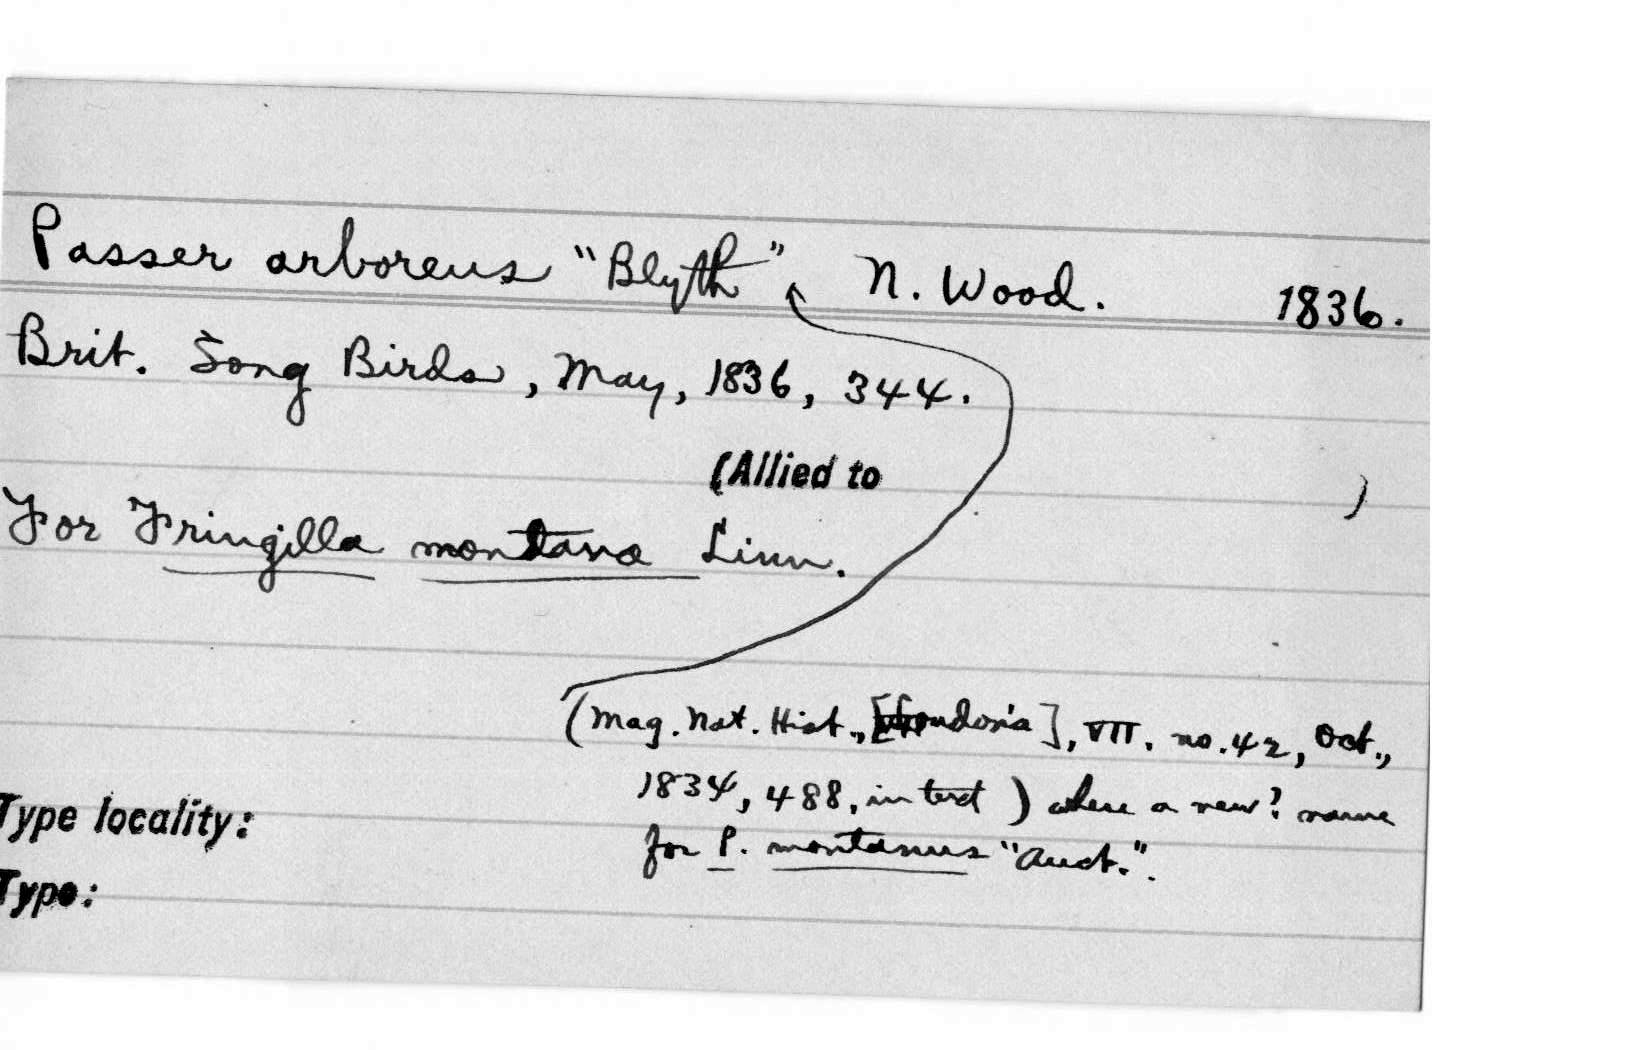 Passer arboreus "Blyth" N. Wood. 1836.
Brit. Song Birds, May, 1836, 344.
(Allied to )
For Fringilla montana Linn.
(Mag. Nat. Hist., [Loudon's], VII. no. 42, Oct.,
1834, 488, in text) where a new? name
for P. montanus "Auct.".
Type locality:
Type: